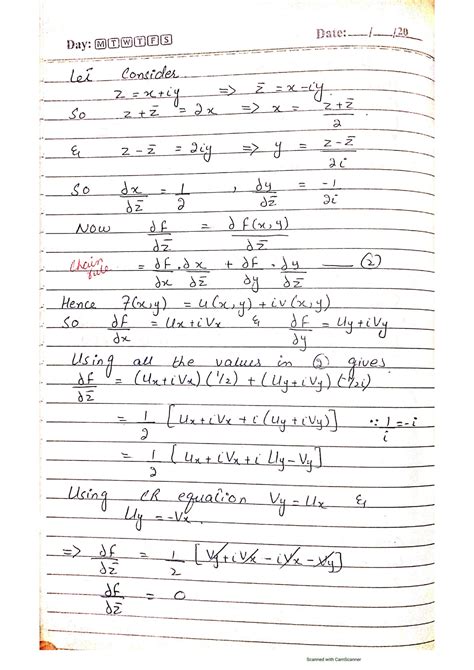 Day: M T W T F S Date: __/__/20
Let Consider
z = x+iy => z̄ = x-iy
So z+z̄ = 2x => x = (z+z̄)/2
& z-z̄ = 2iy => y = (z-z̄)/2i
So ∂x/∂z̄ = 1/2 , ∂y/∂z̄ = -1/2i
Now ∂f/∂z̄ = ∂f(x,y)/∂z̄
Chain rule = ∂f/∂x · ∂x/∂z̄ + ∂f/∂y · ∂y/∂z̄ — (2)
Hence f(x,y) = u(x,y) + iv(x,y)
So ∂f/∂x = Ux+iVx & ∂f/∂y = Uy+iVy
Using all the values in (2) gives
∂f/∂z̄ = (Ux+iVx)(1/2) + (Uy+iVy)(-1/2i)
= 1/2 [Ux+iVx+i(Uy+iVy)] ∵ 1/i = -i
= 1/2 [Ux+iVx+iUy-Vy]
Using CR equation Vy=Ux &
Uy=-Vx.
=> ∂f/∂z̄ = 1/2 [Vy+iVx-iVx-Vy]
∂f/∂z̄ = 0
Scanned with CamScanner